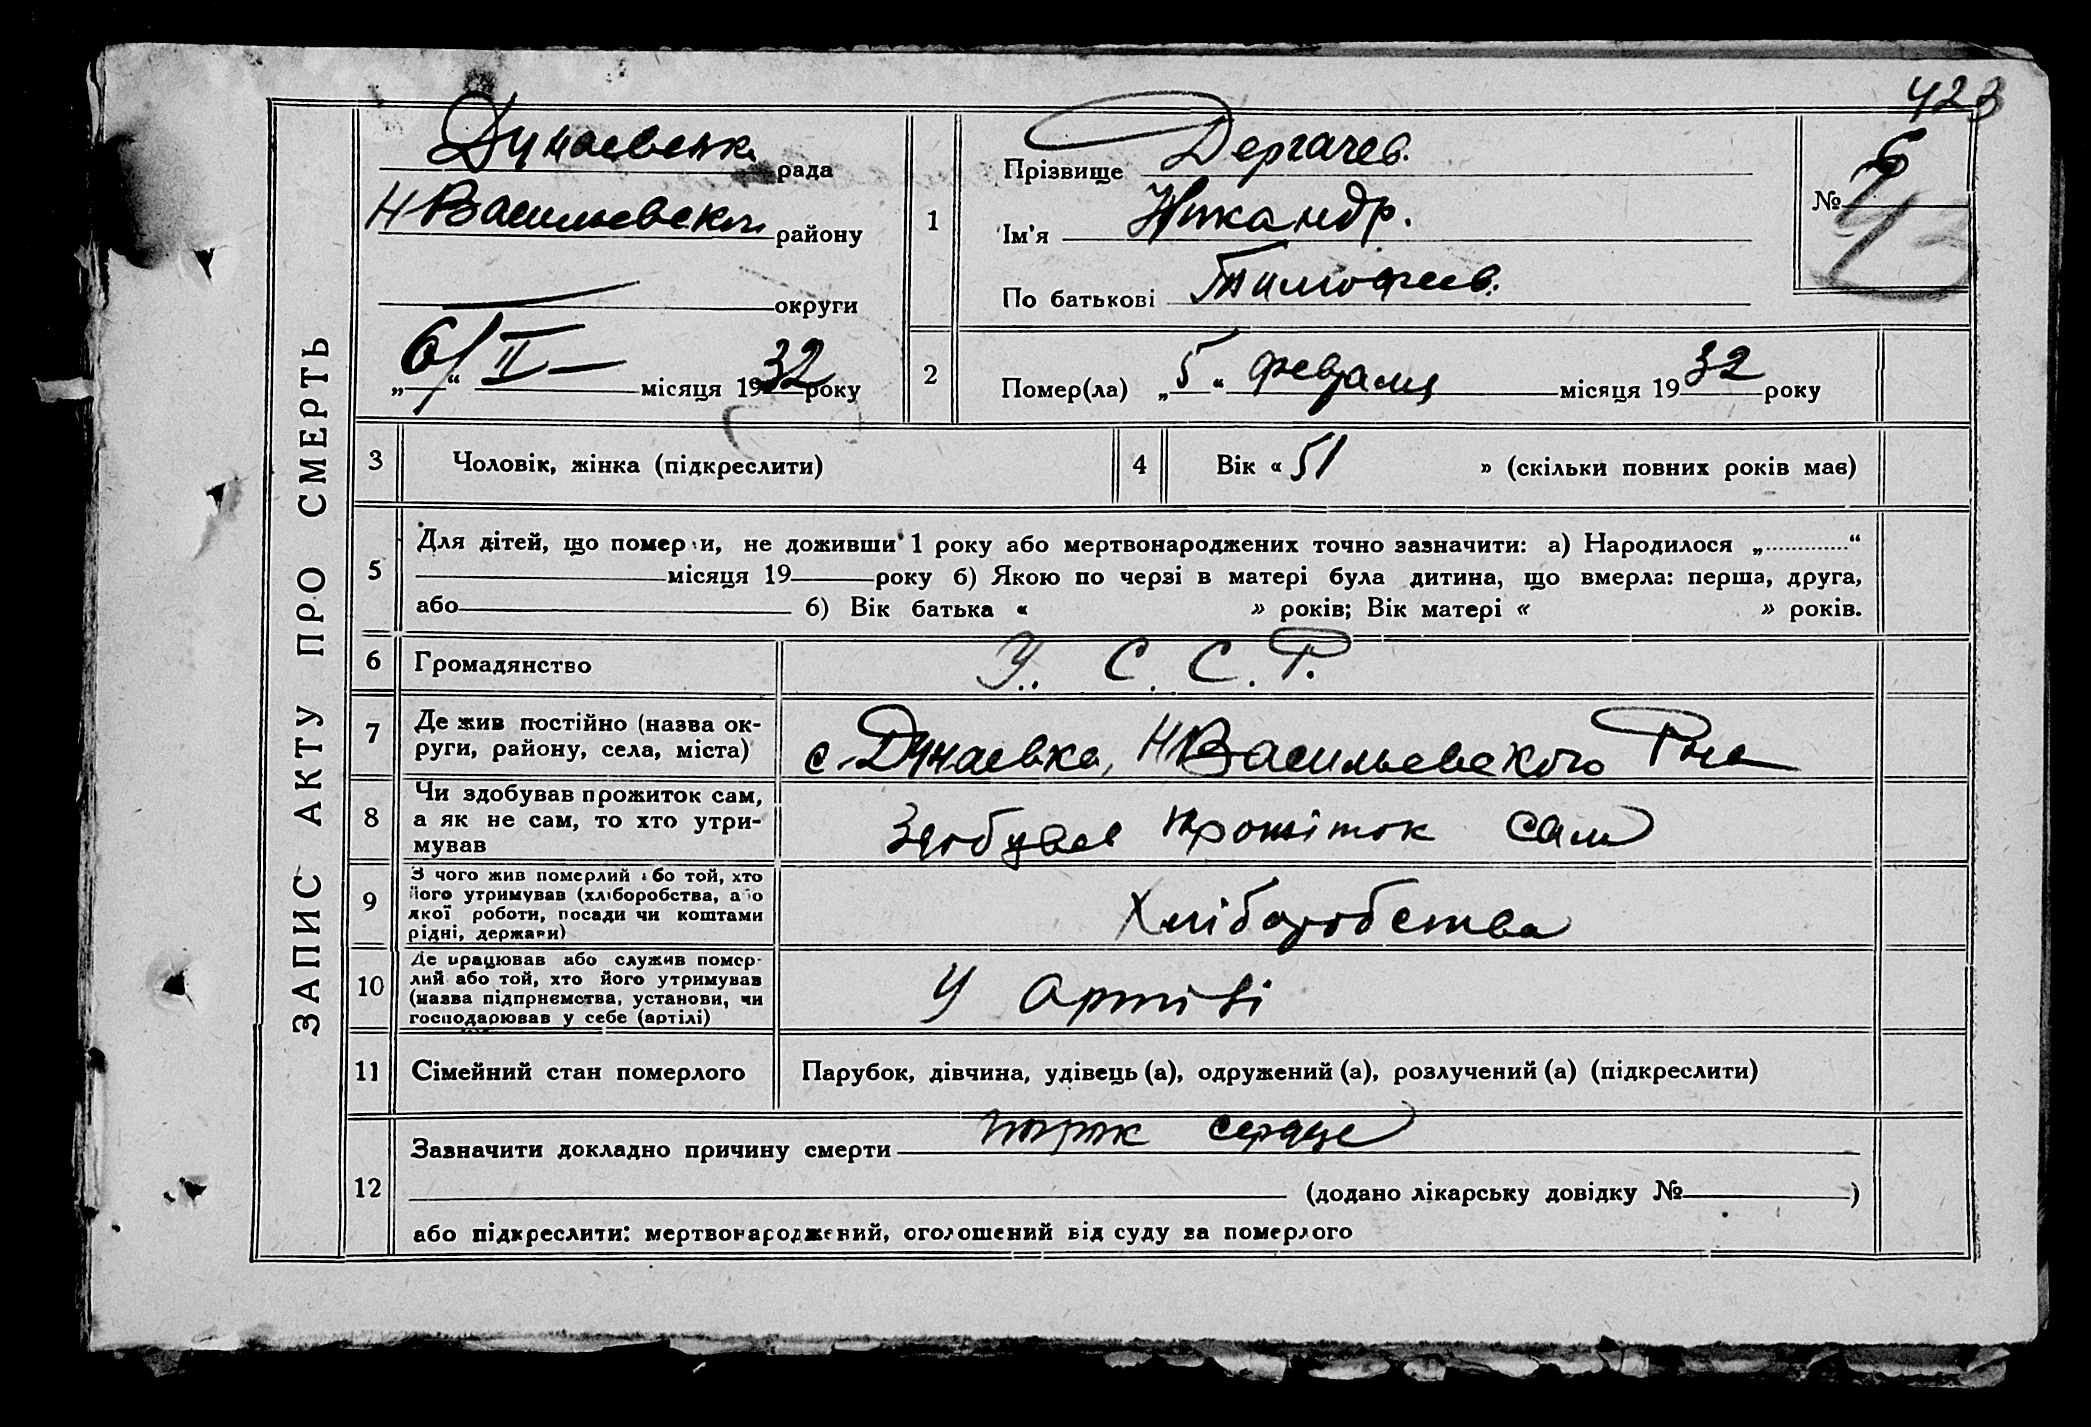 423
ЗАПИС АКТУ ПРО СМЕРТЬ
Дунаевск. рада
НВасильевског. району
округи
„6“ II місяця 1932 року
1
Прізвище Дергачев.
Ім'я Никандр.
По батькові Тимофеев.
№ 6
43
2
Помер(ла) „5“ февраля місяця 1932 року
3 Чоловік, жінка (підкреслити)
4 Вік «51» (скільки повних років має)
5 Для дітей, що померли, не доживши 1 року або мертвонароджених точно зазначити: а) Народилося „............“
місяця 19 року б) Якою по черзі в матері була дитина, що вмерла: перша, друга,
або б) Вік батька « » років; Вік матері « » років.
6 Громадянство У. С. С. Р.
7 Де жив постійно (назва ок-
руги, району, села, міста)
с. Дунаевка, НВасильевского Рна
8 Чи здобував прожиток сам,
а як не сам, то хто утри-
мував
Здобував прожіток сам
9 З чого жив померлий або той, хто
його утримував (хліборобства, або
якої роботи, посади чи коштами
рідні, держави)
Хліборобства
10 Де працював або служив помер-
лий або той, хто його утримував
(назва підприємства, установи, чи
господарював у себе (артілі)
У артілі
11 Сімейний стан померлого Парубок, дівчина, удівець (а), одружений (а), розлучений (а) (підкреслити)
12 Зазначити докладно причину смерти порок сердце
(додано лікарську довідку № )
або підкреслити: мертвонароджений, оголошений від суду за померлого